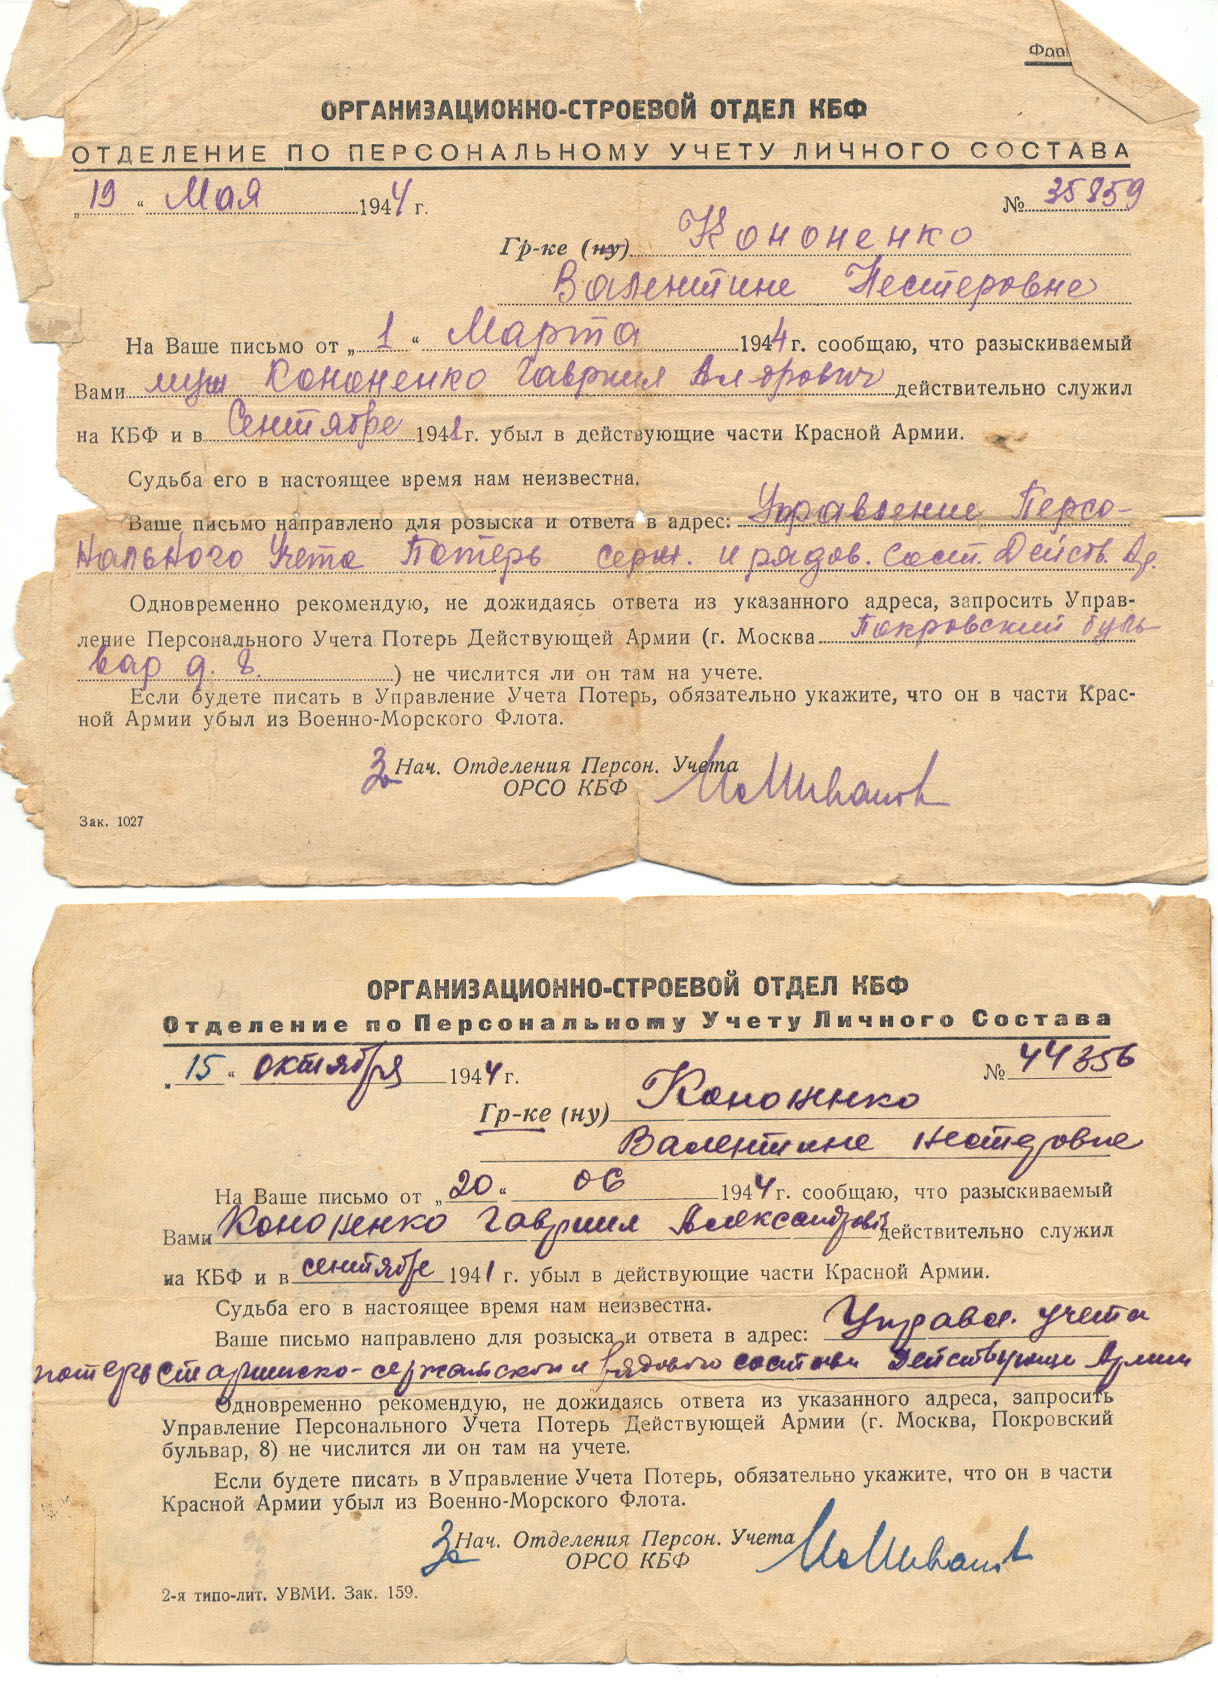 ОРГАНИЗАЦИОННО-СТРОЕВОЙ ОТДЕЛ КБФ
ОТДЕЛЕНИЕ ПО ПЕРСОНАЛЬНОМУ УЧЕТУ ЛИЧНОГО СОСТАВА
„19“ Мая 1944 г. № 35859
Гр-ке (ну) Кононенко
Валентине Нестеровне
На Ваше письмо от „1“ Марта 1944 г. сообщаю, что разыскиваемый
Вами муж Кононенко Гавриил Ал-дрович действительно служил
на КБФ и в Сентябре 1941 г. убыл в действующие части Красной Армии.
Судьба его в настоящее время нам неизвестна.
Ваше письмо направлено для розыска и ответа в адрес: Управление Персо-
нального Учета Потерь серж. и рядов. сост. Действ. Ар.
Одновременно рекомендую, не дожидаясь ответа из указанного адреса, запросить Управ-
ление Персонального Учета Потерь Действующей Армии (г. Москва Покровский буль
вар д. 8. ) не числится ли он там на учете.
Если будете писать в Управление Учета Потерь, обязательно укажите, что он в части Крас-
ной Армии убыл из Военно-Морского Флота.
За Нач. Отделения Персон. Учета
ОРСО КБФ
Зак. 1027
ОРГАНИЗАЦИОННО-СТРОЕВОЙ ОТДЕЛ КБФ
Отделение по Персональному Учету Личного Состава
„15“ октября 1944 г. № 44356
Гр-ке (ну) Кононенко
Валентине Нестеровне
На Ваше письмо от „20“ 06 1944 г. сообщаю, что разыскиваемый
Вами Кононенко Гавриил Александрович действительно служил
на КБФ и в сентябре 1941 г. убыл в действующие части Красной Армии.
Судьба его в настоящее время нам неизвестна.
Ваше письмо направлено для розыска и ответа в адрес: Управл. учета
потерь старшинско-сержантского и рядового состава Действующей Армии
Одновременно рекомендую, не дожидаясь ответа из указанного адреса, запросить
Управление Персонального Учета Потерь Действующей Армии (г. Москва, Покровский
бульвар, 8) не числится ли он там на учете.
Если будете писать в Управление Учета Потерь, обязательно укажите, что он в части
Красной Армии убыл из Военно-Морского Флота.
За Нач. Отделения Персон. Учета
ОРСО КБФ
2-я типо-лит. УВМИ. Зак. 159.